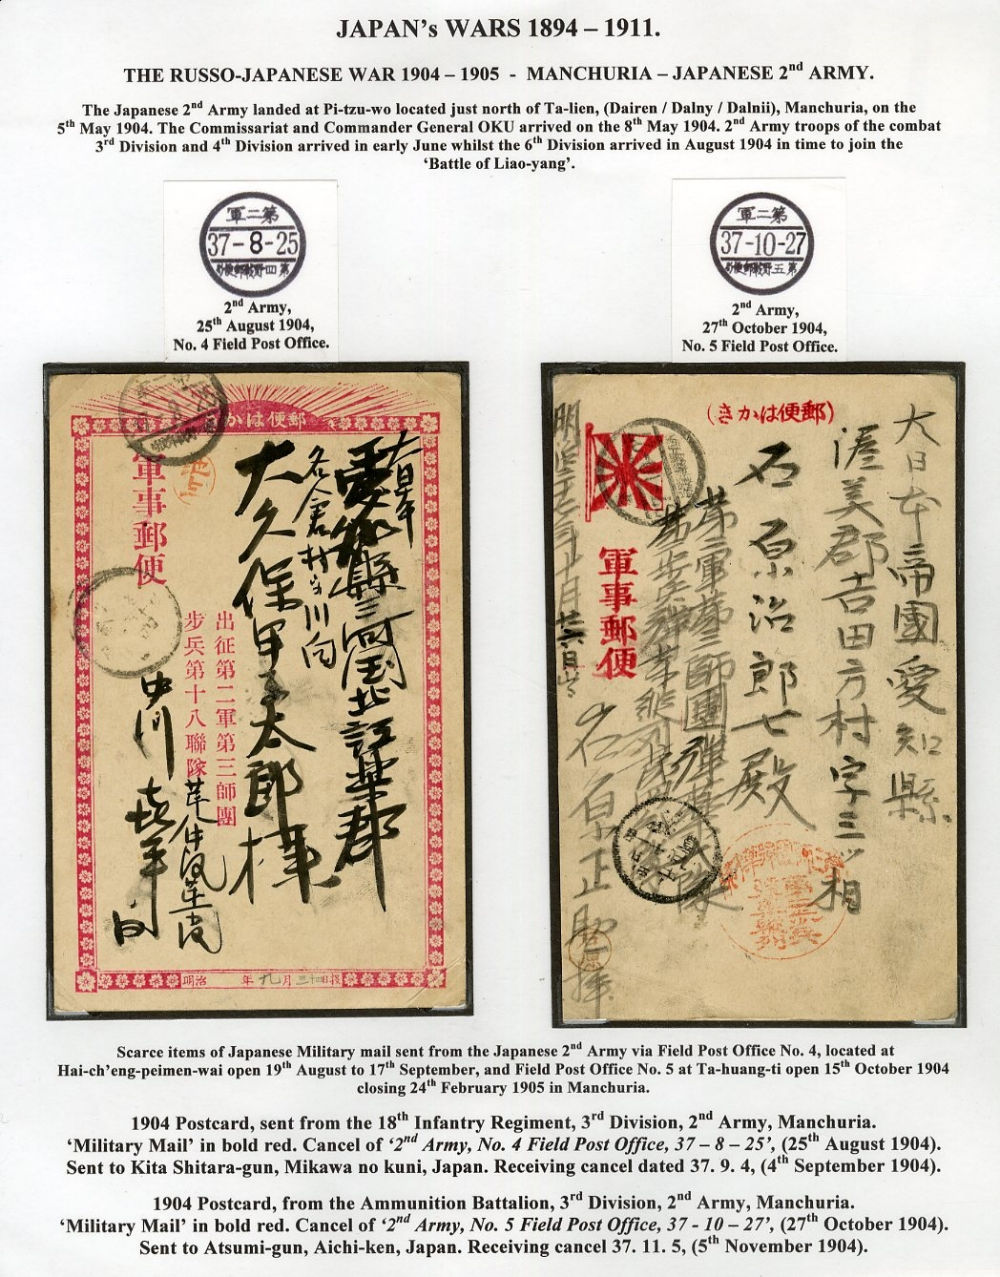 JAPAN's WARS 1894 – 1911.
THE RUSSO-JAPANESE WAR 1904 – 1905 - MANCHURIA – JAPANESE 2nd ARMY.
The Japanese 2nd Army landed at Pi-tzu-wo located just north of Ta-lien, (Dairen / Dalny / Dalnii), Manchuria, on the
5th May 1904. The Commissariat and Commander General OKU arrived on the 8th May 1904. 2nd Army troops of the combat
3rd Division and 4th Division arrived in early June whilst the 6th Division arrived in August 1904 in time to join the
‘Battle of Liao-yang’.
軍二第
37-8-25
局便郵戦野四第
2nd Army,
25th August 1904,
No. 4 Field Post Office.
軍二第
37-10-27
局便郵戦野五第
2nd Army,
27th October 1904,
No. 5 Field Post Office.
かは便郵
軍事郵便
愛知縣三河国北設楽郡
名倉村
大久保甲子太郎様
出征第二軍第三師團
步兵第十八聯隊
中川
明治 年九月 日
(きかは便郵)
軍事郵便
大日本帝國愛知縣
渥美郡吉田方村字三ツ相
石原治郎七殿
第二軍第三師團弾薬大隊
石原正
Scarce items of Japanese Military mail sent from the Japanese 2nd Army via Field Post Office No. 4, located at
Hai-ch'eng-peimen-wai open 19th August to 17th September, and Field Post Office No. 5 at Ta-huang-ti open 15th October 1904
closing 24th February 1905 in Manchuria.
1904 Postcard, sent from the 18th Infantry Regiment, 3rd Division, 2nd Army, Manchuria.
‘Military Mail’ in bold red. Cancel of ‘2nd Army, No. 4 Field Post Office, 37 – 8 – 25’, (25th August 1904).
Sent to Kita Shitara-gun, Mikawa no kuni, Japan. Receiving cancel dated 37. 9. 4, (4th September 1904).
1904 Postcard, from the Ammunition Battalion, 3rd Division, 2nd Army, Manchuria.
‘Military Mail’ in bold red. Cancel of ‘2nd Army, No. 5 Field Post Office, 37 - 10 – 27’, (27th October 1904).
Sent to Atsumi-gun, Aichi-ken, Japan. Receiving cancel 37. 11. 5, (5th November 1904).